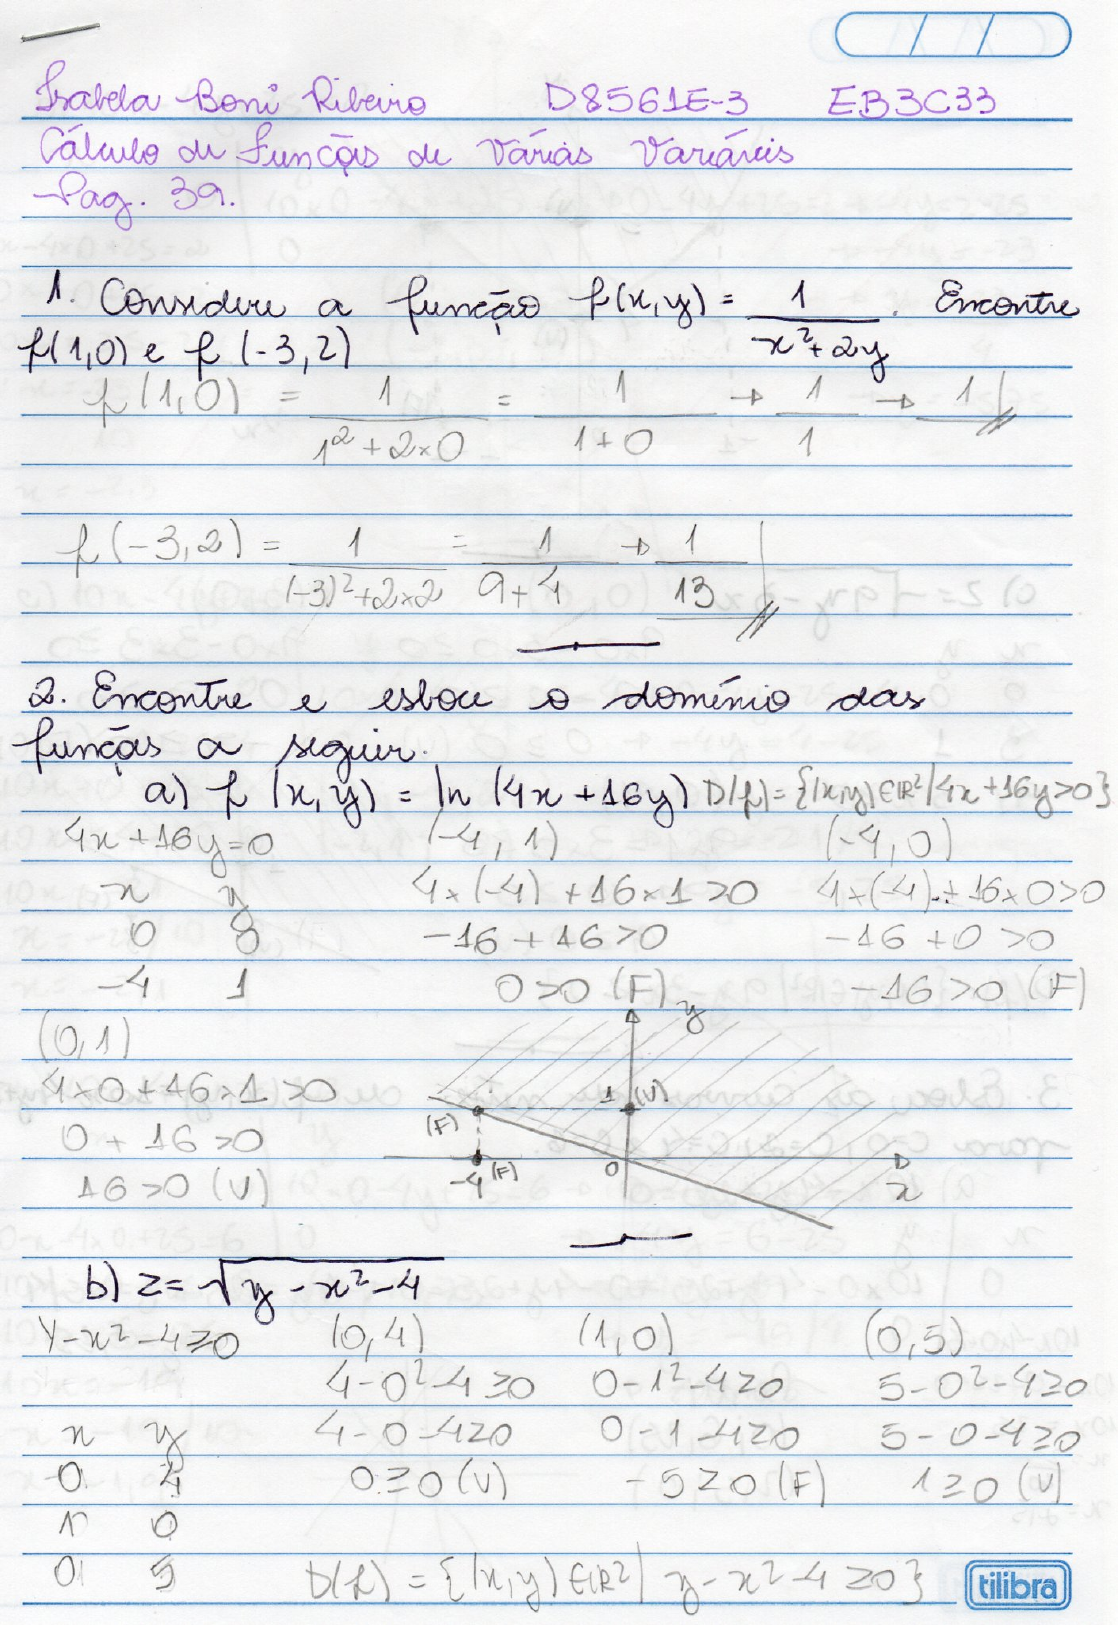 Isabela Boni Ribeiro D8561E-3 EB3C33
Cálculo de Funções de Várias Variáveis
Pag. 39.
1. Considere a função f(x,y) = 1/(x²+2y). Encontre
f(1,0) e f(-3,2)
f(1,0) = 1/(1²+2×0) = 1/(1+0) → 1/1 → 1
f(-3,2) = 1/((-3)²+2×2) = 1/(9+4) → 1/13
2. Encontre e esboce o domínio das
funções a seguir.
a) f(x,y) = ln(4x+16y) D(f)={(x,y)∈ℝ²|4x+16y>0}
4x+16y=0 (-4,1) (-4,0)
x y 4×(-4)+16×1>0 4×(-4)+16×0>0
0 0 -16+16>0 -16+0>0
-4 1 0>0 (F) -16>0 (F)
y
(0,1)
4×0+16×1>0 1 (V)
0+16>0 (F)
16>0 (V) -4 (F) 0 x
b) z=√(y-x²-4)
y-x²-4≥0 (0,4) (1,0) (0,5)
4-0²-4≥0 0-1²-4≥0 5-0²-4≥0
x y 4-0-4≥0 0-1-4≥0 5-0-4≥0
0 4 0≥0 (V) -5≥0 (F) 1≥0 (V)
1 0
0 5 D(f)={(x,y)∈ℝ²| y-x²-4≥0}
tilibra